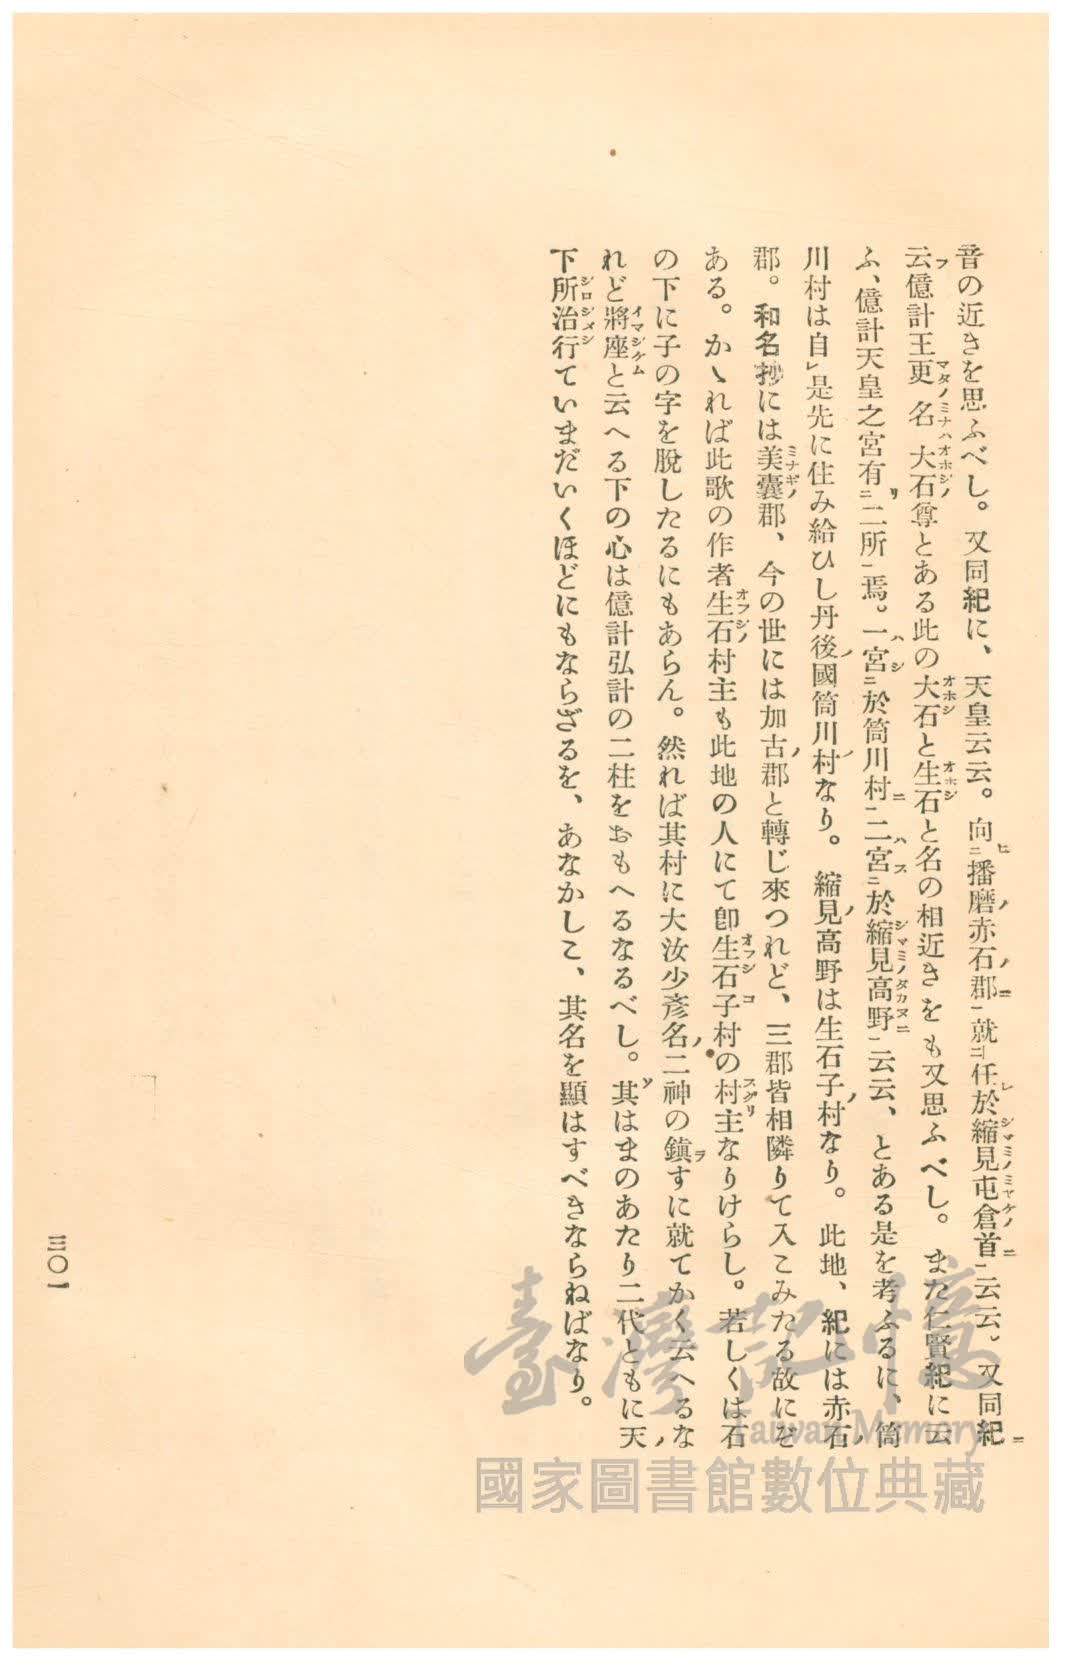 音の近きを思ふべし。又同紀に、天皇云云。向二播磨赤石郡一就二任於縮見屯倉首一云云。又同紀ニ
云フ億計王更名大石尊とある此の大石と生石と名の相近きをも又思ふべし。また仁賢紀に云
ふ、億計天皇之宮有二二所一焉。一宮二於筒川村一二宮二於縮見高野一云云、とある是を考ふるに、筒
川村は自レ是先に住み給ひし丹後國筒川村なり。縮見高野は生石子村なり。此地、紀には赤石
郡。和名抄には美囊郡、今の世には加古郡と轉じ來つれど、三郡皆相隣りて入こみたる故にぞ
ある。かゝれば此歌の作者生石村主も此地の人にて卽生石子村の村主なりけらし。若しくは石
の下に子の字を脫したるにもあらん。然れば其村に大汝少彥名ノ二神の鎭すに就てかく云へるな
れど將座と云へる下の心は億計弘計の二柱をおもへるなるべし。其はまのあたり二代ともに天
下所治行ていまだいくほどにもならざるを、あなかしこ、其名を顯はすべきならねばなり。
三〇一
臺灣記憶
Taiwan Memory
國家圖書館數位典藏